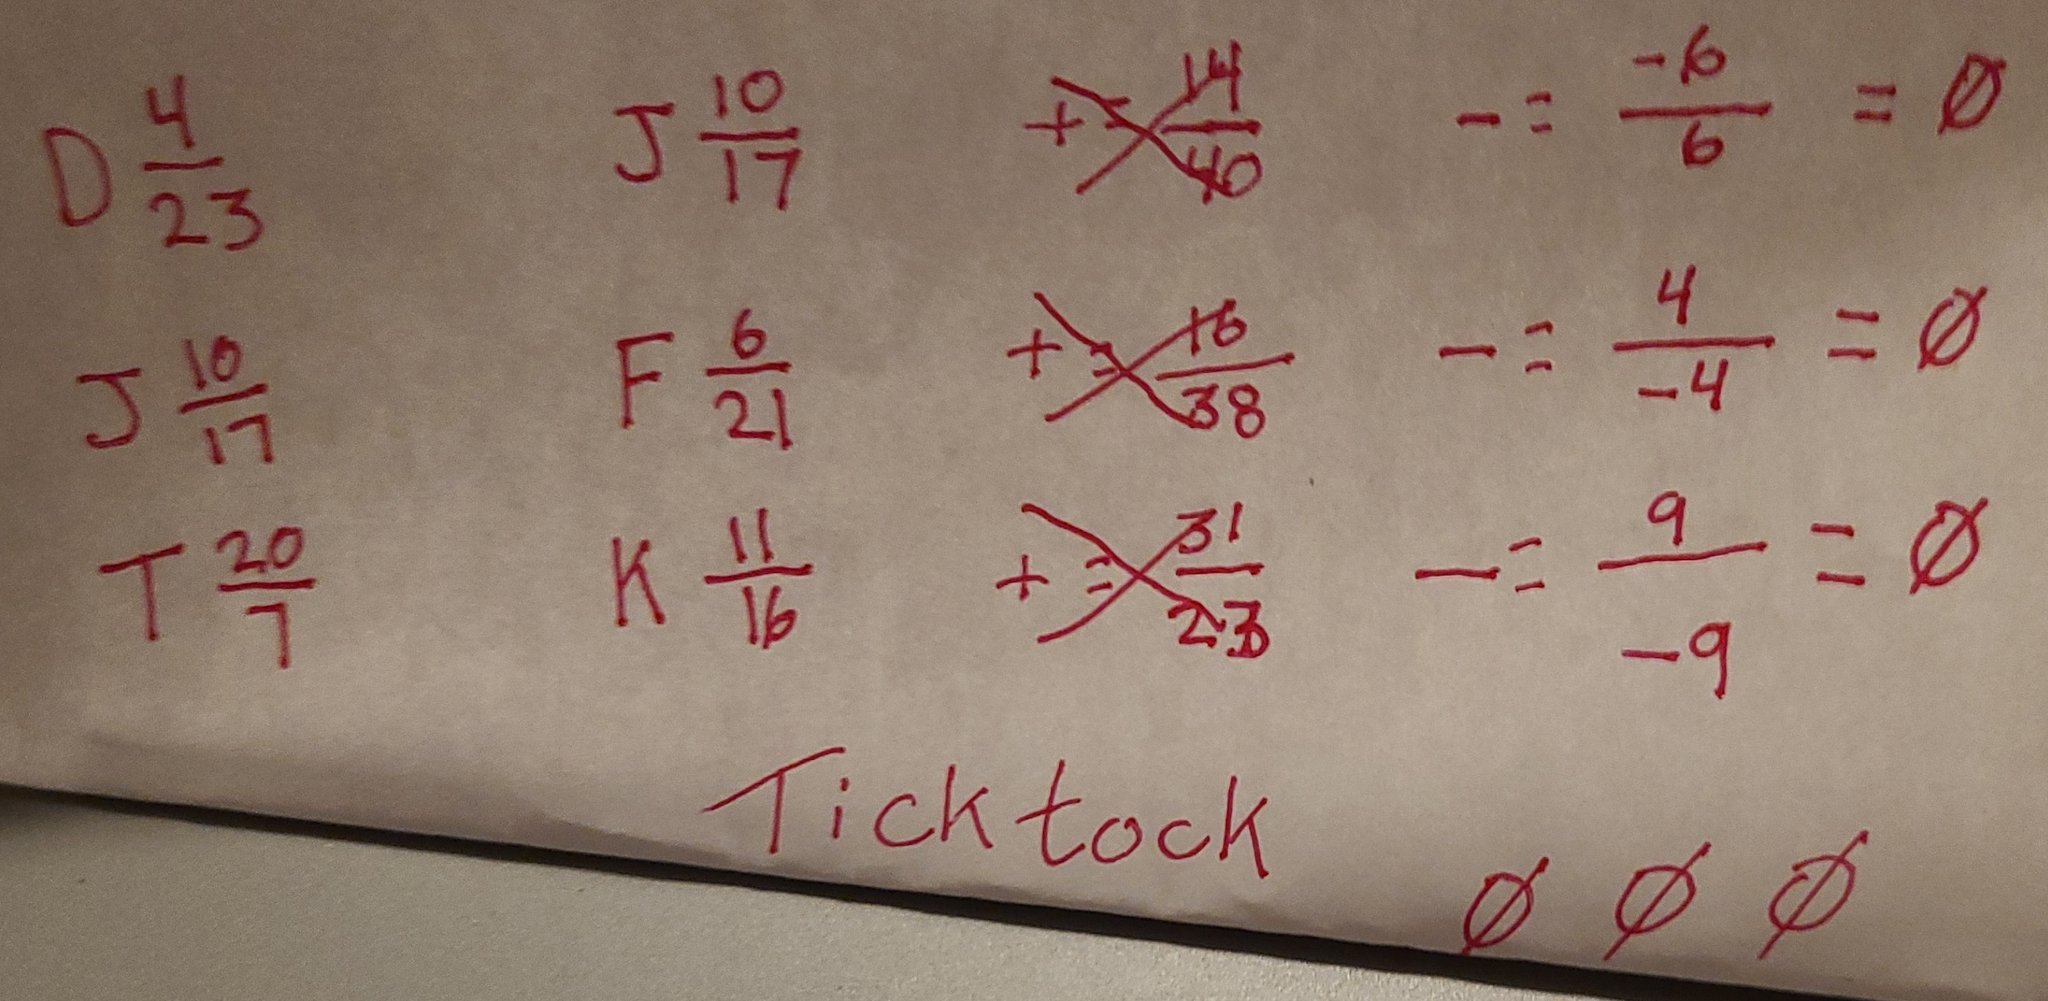 D 4/23 J 10/17 + = 14/40 - = -6/6 = Ø
J 10/17 F 6/21 + = 16/38 - = 4/-4 = Ø
T 20/7 K 11/16 + = 31/23 - = 9/-9 = Ø
Tick tock
Ø Ø Ø